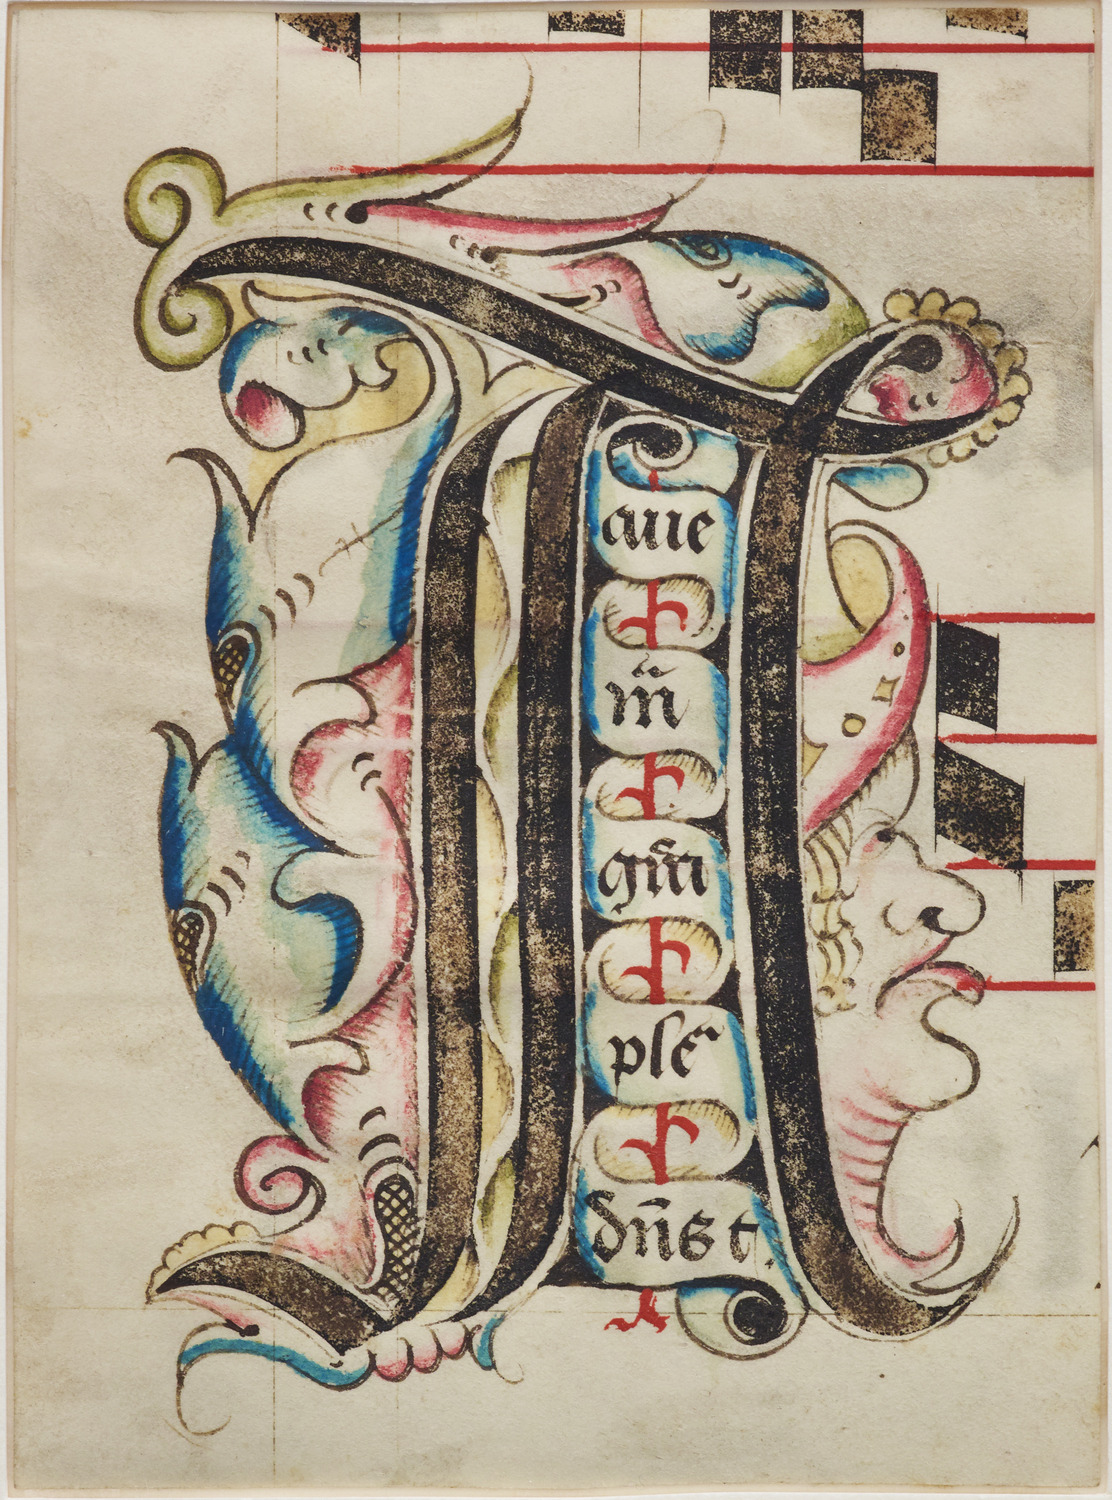 aue
m̃
gr̃a
plẽ
dñs t.